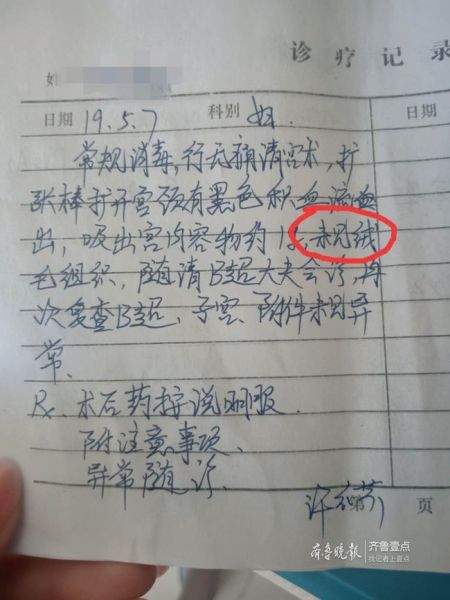 诊疗记录
姓
日期 19.5.7 科别 妇.
日期
常规消毒,行无痛清宫术,扩
张棒扩开宫颈有黑色积血流
出,吸出宫内容物约 未见绒
毛组织,随请B超大夫会诊,再
次复查B超、子宫、附件未见异
常.
Rx. 术后药按说明服.
附注意事项、
异常随诊.
许 第 页
齐鲁晚报 齐鲁壹点
找记者上壹点